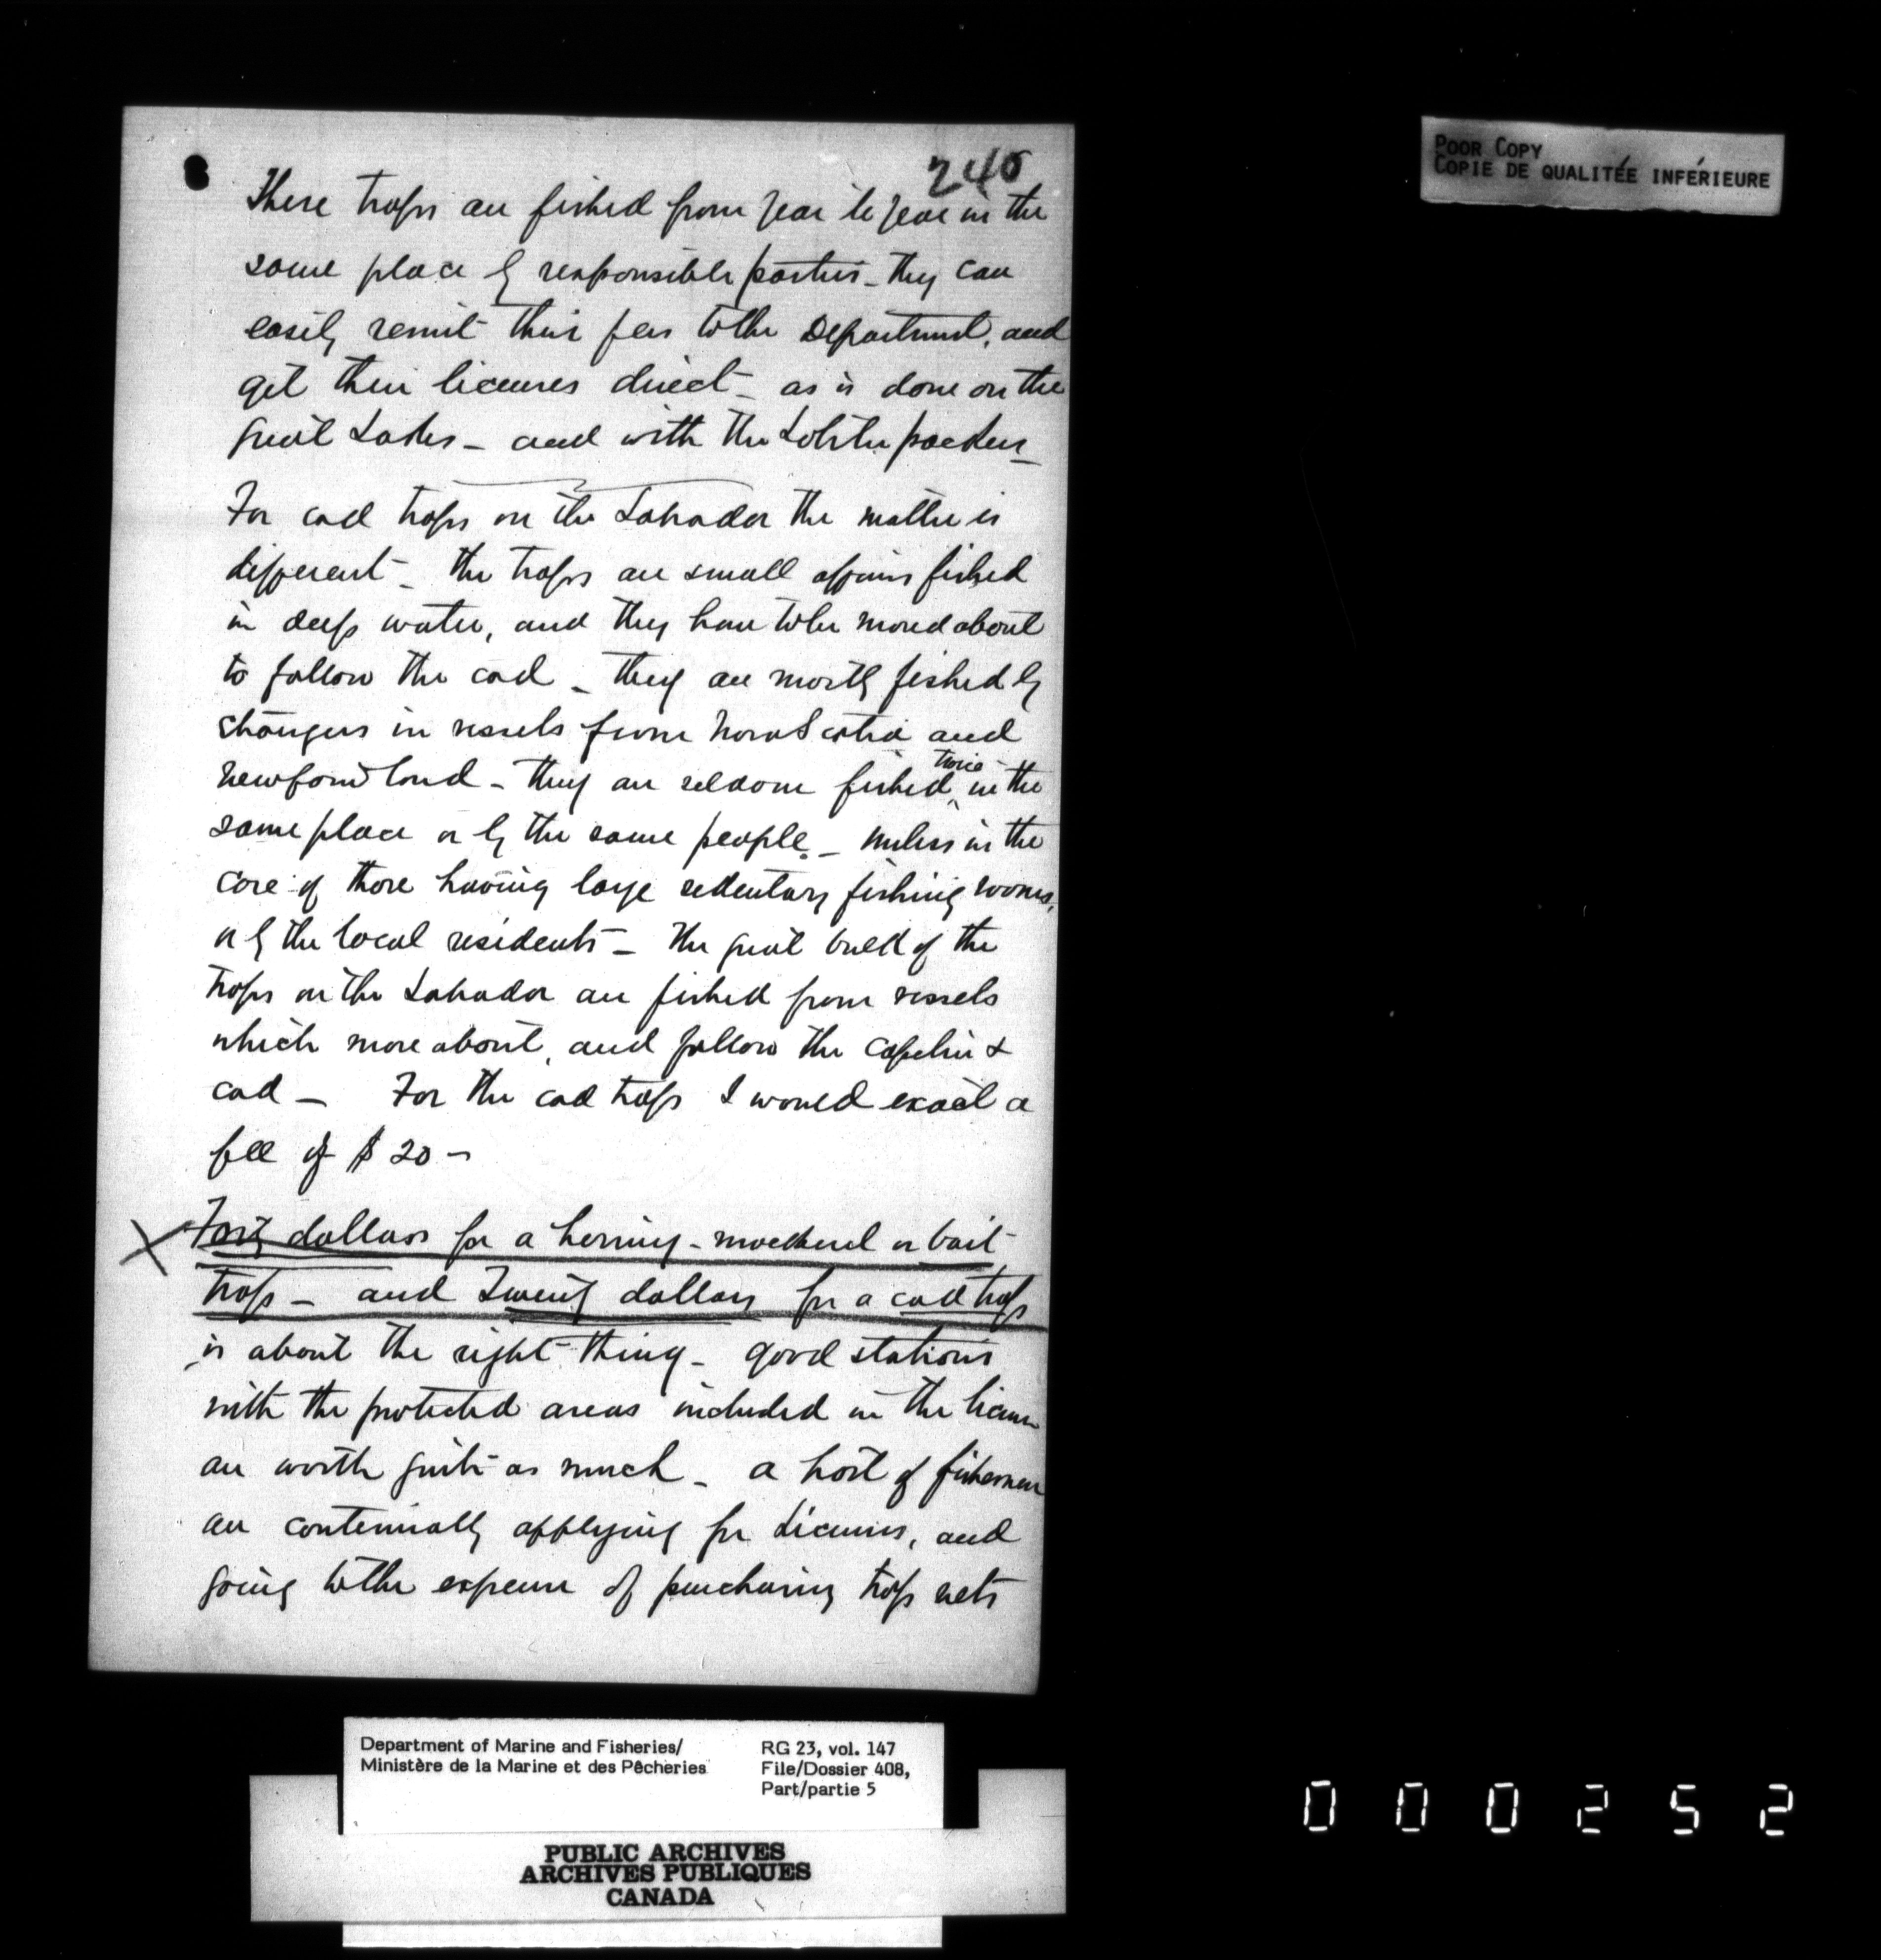 240
POOR COPY
COPIE DE QUALITÉE INFÉRIEURE
These traps are fished from year to year in the
same place by responsible parties - they can
easily remit their fees to the Department, and
get their licenses direct - as is done on the
great Lakes - and with the Lobster packers -
For cod traps on the Labrador the matter is
different - the traps are small affairs fished
in deep water, and they have to be moved about
to follow the cod - they are mostly fished by
strangers in vessels from Nova Scotia and
Newfoundland - they are seldom fished twice in the
same place or by the same people - unless in the
case of those having large sedentary fishing rooms,
or by the local residents - The great bulk of the
traps on the Labrador are fished from vessels
which move about, and follow the capelin &
cod - For the cod traps I would exact a
fee of $20 -
X Forty dollars for a herring - mackerel or bait
trap - and Twenty dollars for a cod trap
is about the right thing - good stations
with the protected areas included in the license
are worth quite as much - a host of fishermen
are continually applying for Licenses, and
going to the expense of purchasing trap nets
Department of Marine and Fisheries/
Ministère de la Marine et des Pêcheries
RG 23, vol. 147
File/Dossier 408,
Part/partie 5
PUBLIC ARCHIVES
ARCHIVES PUBLIQUES
CANADA
000252